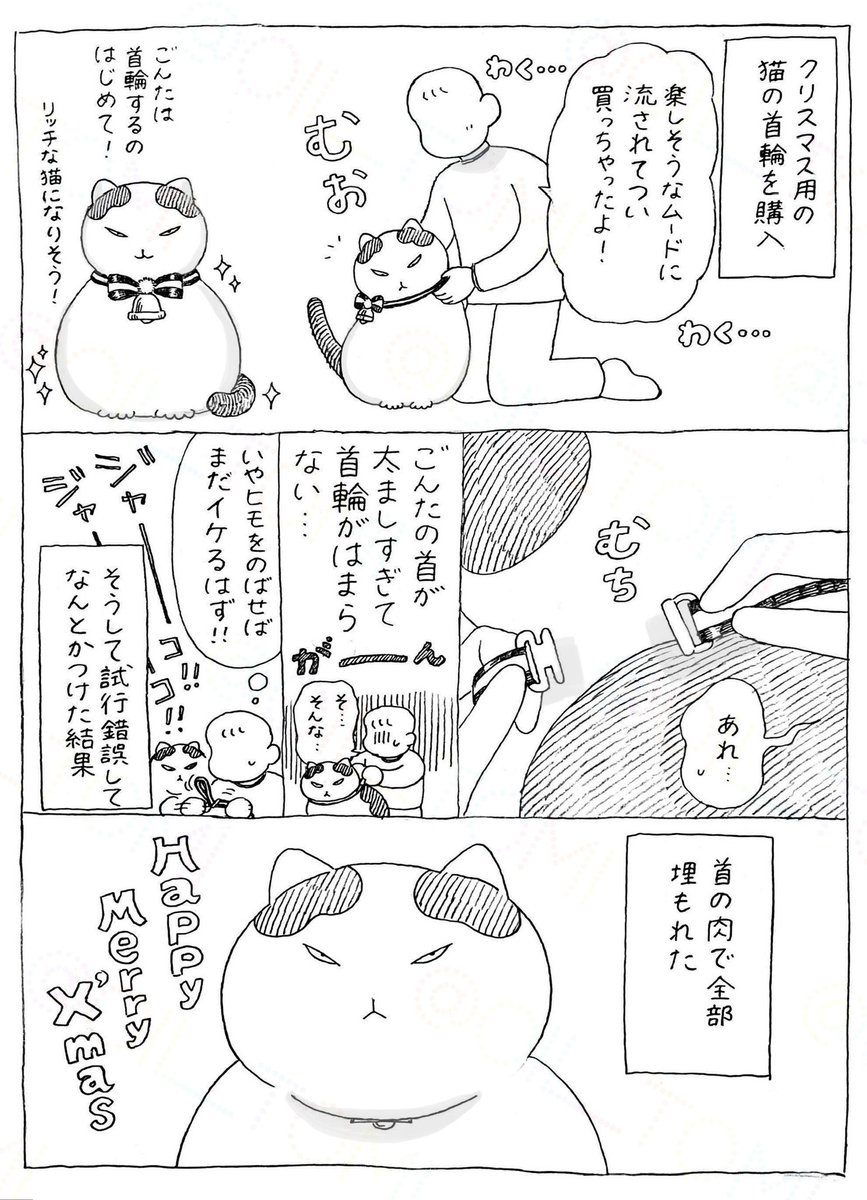 クリスマス用の
猫の首輪を購入
楽しそうなムードに
流されてつい
買っちゃったよ！
わく…
わく…
むお
ごんたは
首輪するの
はじめて！
リッチな猫になりそう！
むち
あれ…
ごんたの首が
太ましすぎて
首輪がはまら
ない…
ガーーん
そ…
そんな…
いやヒモをのばせば
まだイケるはず!!
ジャーーコ!!
ジャーーコ!!
そうして試行錯誤して
なんとかつけた結果
首の肉で全部
埋もれた
Happy
Merry
X'mas